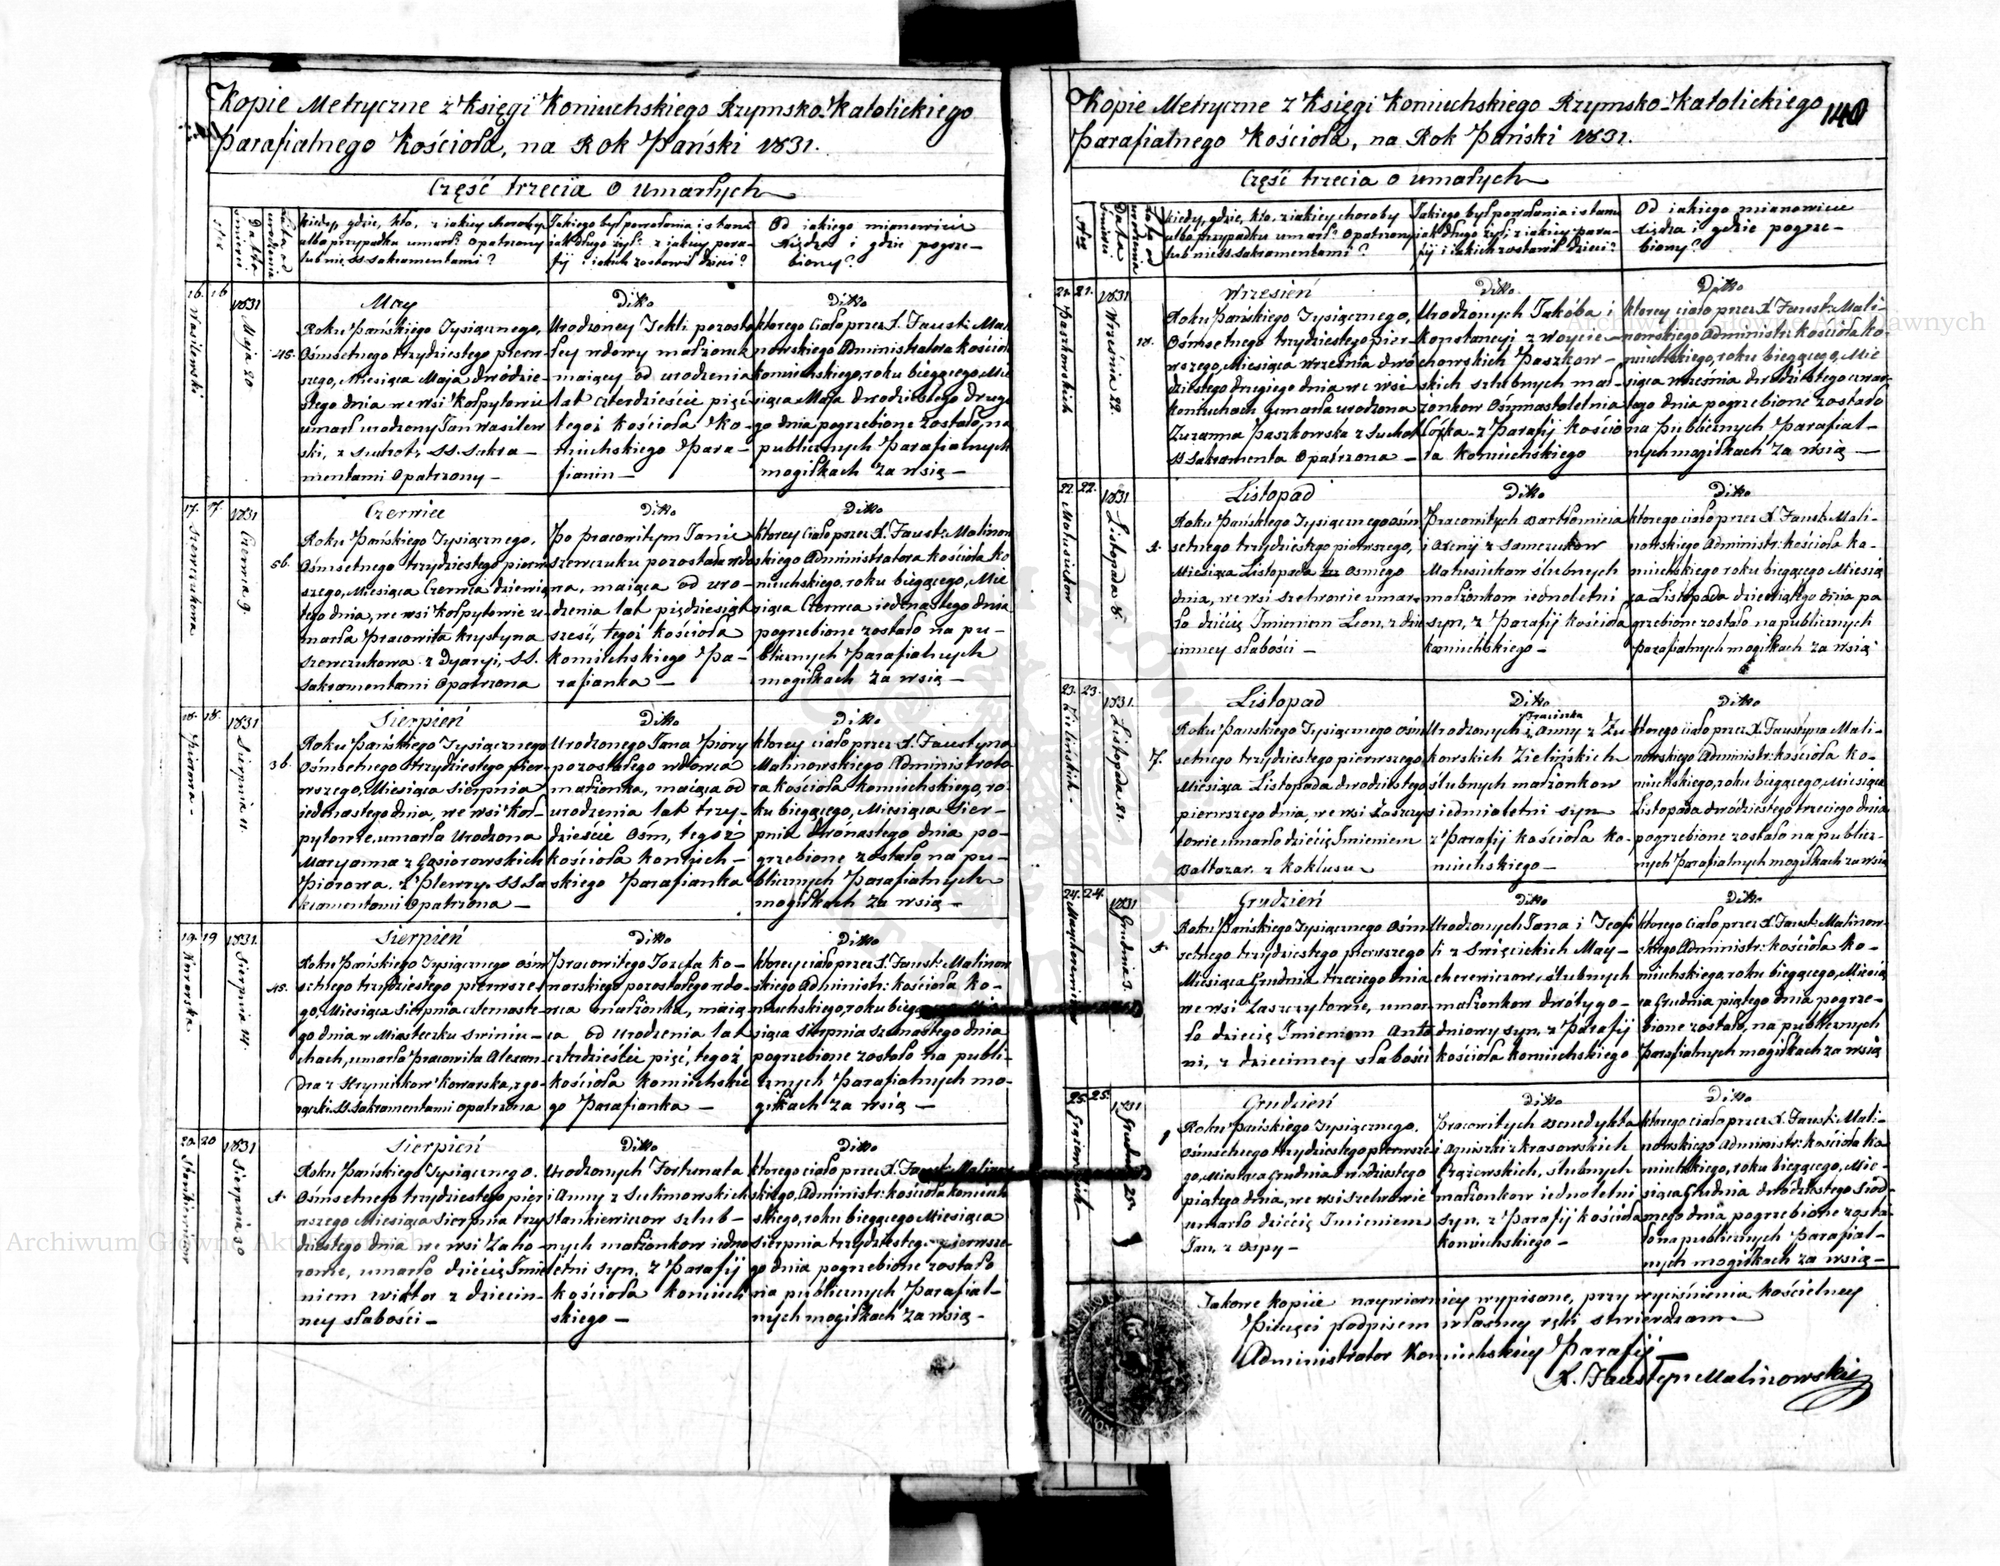 Kopie Metryczne z Księgi Koniuchskiego Rzymsko-Katolickiego
Parafialnego Kościoła, na Rok Pański 1831.
Część trzecia o umarłych
kiedy, gdzie, kto, z iakiey choroby
albo przypadku umarł? Opatrzony
lub nie, SS. Sakramentami?
Jakiego był powołania i stanu
iak długo żył? z iakiey para-
fij i iakich zostawił dzieci?
Od iakiego mianowicie
Xiędza i gdzie pogrze-
biony?
16. 16
Wasilewski
1831 Maja 20
45.
May
Roku Pańskiego Tysiącznego,
Ośmsetnego trzydziestego pierw
szego, Miesiąca Maja dwódzie-
stego dnia we wsi Kołpytowie
umarł urodzony Jan Wasilew
ski, z suchot, SS. Sakra-
mentami Opatrzony -
Ditto
Urodzoney Tekli pozosta
łey wdowy małżonek
maiący od urodzenia
lat czterdzieści pięć
tegoż kościoła Ko-
niuchskiego Para-
fianin -
Ditto
którego Ciało przez X. Faust: Mali
nowskiego Administratora Kościoła
koniuchskiego, roku bieggcego Mie
siąca Maja dwodziestego drugie
go dnia pogrzebione zostało, na
publicznych Parafialnych
mogiłkach za wsią -
17. 17
Szewczukowa
1831 Czerwca 9.
56.
Czerwiec
Roku Pańskiego Tysiącznego,
Ośmsetnego trzydziestego pierw
szego, Miesiąca Czerwca dziewią
tego dnia, we wsi Kołpytowie u-
marła Pracowita Krystyna
Szewczukowa z Dyaryi, SS.
Sakramentami Opatrzona
Ditto
Po pracowitym Janie
Szewczuku pozostała wdo
wa, maiąca od uro-
dzenia lat pięćdziesiąt
sześć, tegoż kościoła
Koniuchskiego Pa-
rafianka -
Ditto
którey Ciało przez X. Faust: Malinow
skiego Administratora Kościoła Ko
niuchskiego, roku bieggcego, Mie
siąca Czerwca iedenastego dnia
pogrzebione zostało na pu-
blicznych Parafialnych
mogiłkach za wsią -
18. 18.
Piorowa -
1831 Sierpnia 11.
38.
Sierpień
Roku Pańskiego Tysiącznego
Ośmsetnego trzydziestego pier
wszego, Miesiąca Sierpnia
iednastego dnia, we wsi Koł-
pytowie, umarła Urodzona
Maryanna z Gąsiorowskich
Piorowa. z Plewry. SS. Sa
kramentami Opatrzona -
Ditto
Urodzonego Jana Piory
pozostałego wdowca
małżonka, maiąca od
urodzenia lat trzy-
dzieście Ośm, tegoż
kościoła Koniuch-
skiego Parafianka
Ditto
którey ciało przez X. Faustyna
Malinowskiego Administrato
ra kościoła koniuchskiego, ro
ku bieggcego, Miesiąca Sier-
pnia dwónastego dnia po-
grzebione zostało na pu-
blicznych Parafialnych
mogiłkach za wsią -
19. 19
1831. Sierpnia 14.
45.
Sierpień
Roku Pańskiego Tysiącznego ośm
setnego trzydziestego pierwsze-
go, Miesiąca Sierpnia czternaste-
go dnia w Miasteczku Swiniu-
chach, umarła Pracowita Alexan-
SS. Sakramentami opatrzona
Ditto
Pracowitego Jozefa Ko-
warskiego pozostałego wdo-
wca małżonka, maią-
ca od urodzenia lat
czterdzieści pięć, tegoż
kościoła Koniuchskie
go Parafianka -
Ditto
którey ciało przez X. Faust: Malinow
skiego Administr: kościoła Ko-
niuchskiego, roku bieggcego Mie-
siąca Sierpnia szesnastego dnia
pogrzebione zostało na publi-
cznych Parafialnych mo-
giłkach za wsią -
20. 20
Stankiewiczow
1831 Sierpnia 30
1.
Sierpień
Roku Pańskiego Tysiącznego.
Ośmsetnego trzydziestego pier
wszego Miesiąca Sierpnia trzy
dziestego dnia we wsi Zaho-
rowie, umarło dziecię Imie
niem Wiktor z dziecin-
ney słabości -
Ditto
Urodzonych Fortunata
i Anny z Sulimowskich
Stankiewiczow szlub-
nych małżonkow iedno
letni syn, z Parafij
kościoła koniuch
skiego -
Ditto
którego ciało przez X. Faust: Malinow
skiego, Administr: kościoła koniuch
skiego, roku bieggcego Miesiąca
Sierpnia trzydziesteg. pierwsze-
go dnia pogrzebione zostało
na publicznych Parafial-
nych mogiłkach za wsią -
Kopie Metryczne z Księgi Koniuchskiego Rzymsko-Katolickiego
140
Parafialnego Kościoła, na Rok Pański 1831.
Część trzecia o umarłych
kiedy, gdzie, kto, z iakiey choroby
albo przypadku umarł? Opatrzony
lub nie SS. Sakramentami?
Jakiego był powołania i stanu
iak długo żył? z iakiey para-
fij i iakich zostawił dzieci?
Od iakiego mianowicie
Xiędza i gdzie pogrze-
biony?
21. 21.
Paszkowskich
1831 Września 22.
18.
Wrzesień
Roku Pańskiego Tysiącznego,
Ośmsetnego trzydziestego pier-
wszego, Miesiąca września dwo
dziestego drugiego dnia we wsi
Koniuchach umarła urodzona
Zuzanna Paszkowska z Suchot
SS Sakramenta Opatrzona -
Ditto
Urodzonych Jakóba i
Konstancyi z Woycie-
chowskich Paszkow-
skich szlubnych mał-
żonkow Ośmnastoletnia
Córka. z Parafij Kościo
ła Koniuchskiego
Ditto
którey ciało przez X. Faust: Mali-
nowskiego Administr: kościoła ko-
niuchskiego, roku bieggcego, Mie
siąca września dwodziestego czwar
tego dnia pogrzebione zostało
na Publicznych Parafial-
nych mogiłkach za wsią -
22. 22.
Matusiukow
1831 Listopada 8.
1.
Listopad
Roku Pańskiego Tysiącznego ośm
setnego trzydziestego pierwszego,
Miesiąca Listopada osmego
dnia, we wsi Szelwowie umar-
ło dziecię Imieniem Leon, z dzie
cinney słabości -
Ditto
Pracowitych Bartłomieia
i Axenij z Samczukow
Matusiukow ślubnych
małżonkow iednoletni
syn, z Parafij kościoła
koniuchskiego -
Ditto
którego ciało przez X. Faust: Mali-
nowskiego Administr: kościoła ko-
niuchskiego roku bieggcego Miesią
ca Listopada dziewiątego dnia po
grzebione zostało na publicznych
Parafialnych mogiłkach za wsią
23. 23.
Zielińskich -
1831. Listopada 21.
7.
Listopad
Roku Pańskiego Tysiącznego ośm
setnego trzydziestego pierwszego
Miesiąca Listopada dwodziestego
pierwszego dnia, we wsi Łaszczy
towie umarło dziecię Imieniem
Baltazar. z Koklusu
Ditto
Franciszka
Urodzonych i Anny z Żu
kowskich Zielińskich
ślubnych małżonkow
siedmioletni syn
z Parafij kościoła ko-
niuchskiego -
Ditto
którego ciało przez X. Faustyna Mali-
nowskiego Administr: kościoła ko-
niuchskiego, roku bieggcego, Miesiąca
Listopada dwódziestego trzeciego dnia
pogrzebione zostało na publicz-
nych Parafialnych mogiłkach za wsią
24. 24.
1831 Grudnia 3.
Grudzień
Roku Pańskiego Tysiącznego Ośm
setnego trzydziestego pierwszego
Miesiąca Grudnia trzeciego dnia
we wsi Łaszczytowie, umar
ło dziecię Imieniem Anto
ni, z dziecinney słabości
Ditto
Urodzonych Jana i Teofi
li z Swięcickich May-
cherewiczow, ślubnych
małżonkow dwótygo-
dniowy syn, z Parafij
kościoła koniuchskiego
Ditto
którego ciało przez X. Faust: Malinow-
skiego Administr: kościoła ko-
niuchskiego, roku bieggcego, Miesią
ca Grudnia piątego dnia pogrze-
bione zostało, na publicznych
Parafialnych mogiłkach za wsią
25. 25.
1831 Grudnia 25.
1
Grudzień
Roku Pańskiego Tysiącznego.
Ośmsetnego trzydziestego pierwsze-
go, Miesiąca Grudnia dwodziestego
piątego dnia, we wsi Szelwowie
umarło dziecię Imieniem
Jan, z Ospy -
Ditto
Pracowitych Benedykta
i Agniszki z Krasowskich
ślubnych
małżonkow iednoletni
syn, z Parafij kościoła
koniuchskiego -
Ditto
którego ciało przez X. Faust: Mali-
nowskiego Administr: kościoła ko
niuchskiego, roku bieggcego, Mie-
siąca Grudnia dwódziestego siod-
mego dnia pogrzebione zosta-
ło na publicznych Parafial-
nych mogiłkach za wsią -
Takowe kopiie naywierniey wypisane, przy wyciśnieniu kościelney
Pieczęci podpisem własney ręki stwierdzam
Administrator Koniuchskiey Parafij
X. Faustyn Malinowski
Archiwum Główne Akt Dawnych
Archiwum Główne Akt Dawnych